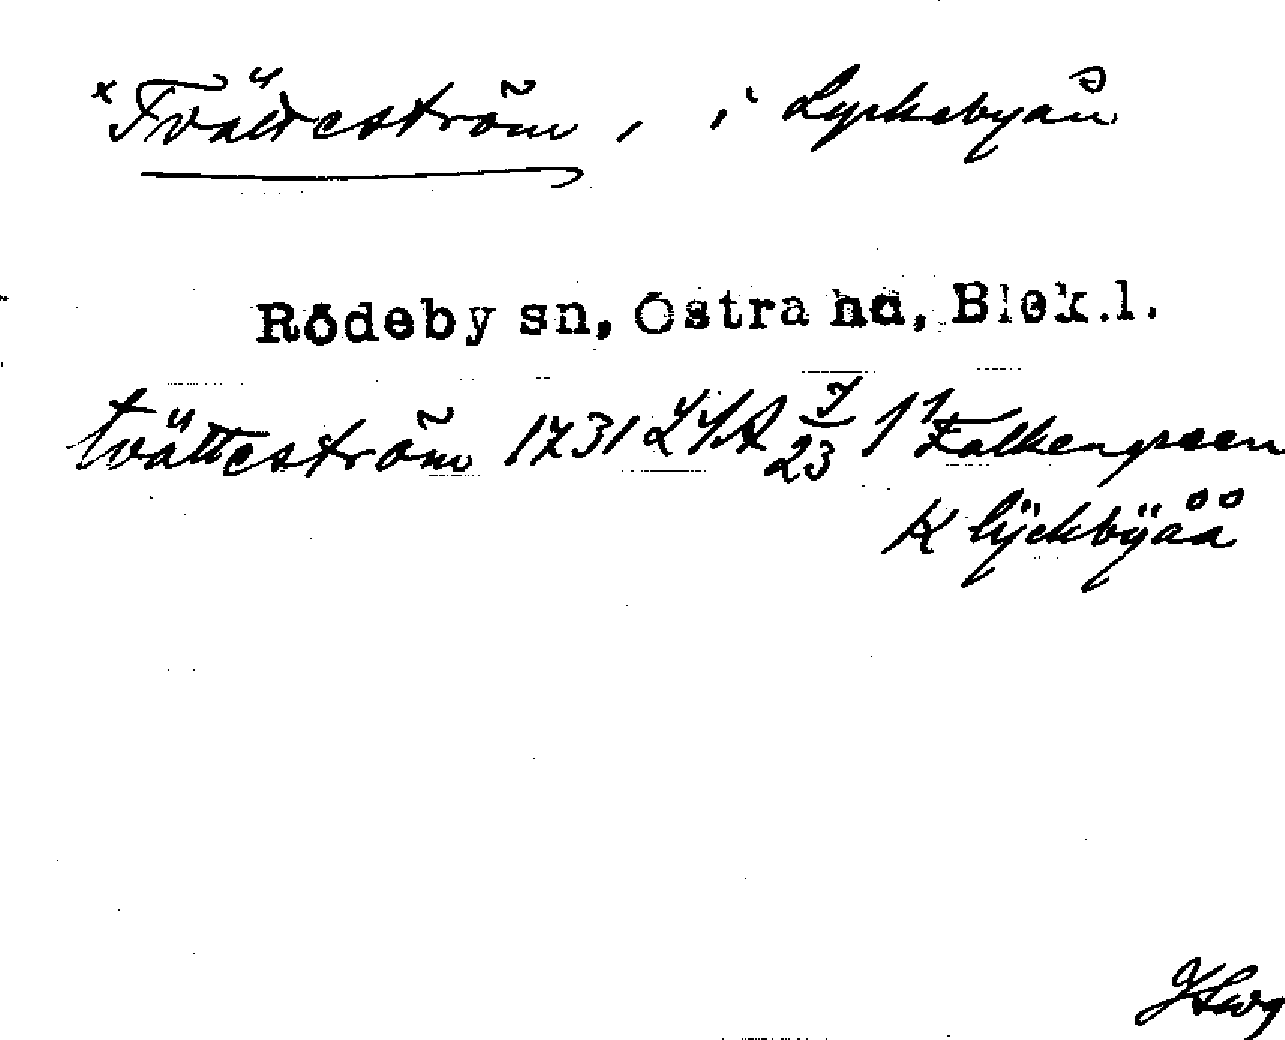 x Tvätteström, i Lyckebyån
Rödeby sn, Östra hd, Blek.l.
tvätteström 1731 LSA 7/23 Falkengreen
K lÿckbÿåå